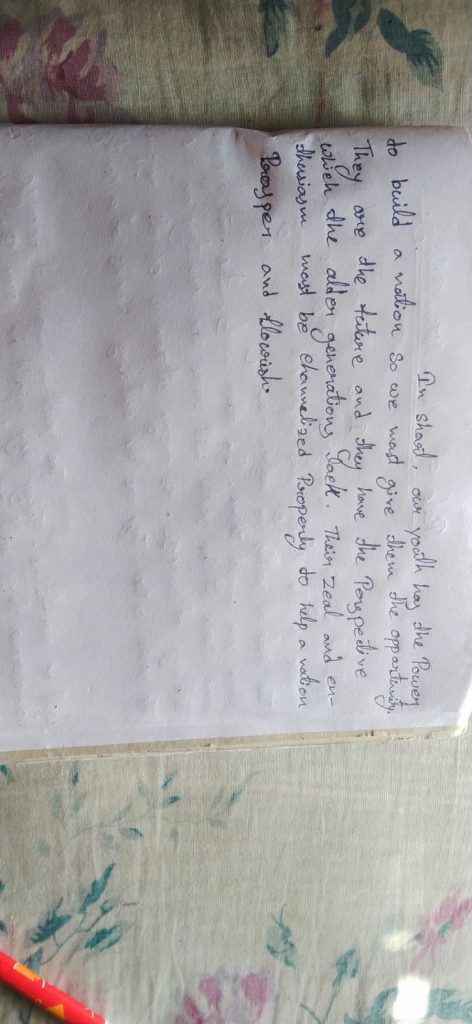 In short, our youth has the Power
to build a nation so we must give them the opportunity.
They are the future and they have the Perspective
which the older generations lack. Their zeal and en-
thusiasm must be channelized Properly to help a nation
Prosper and flourish.